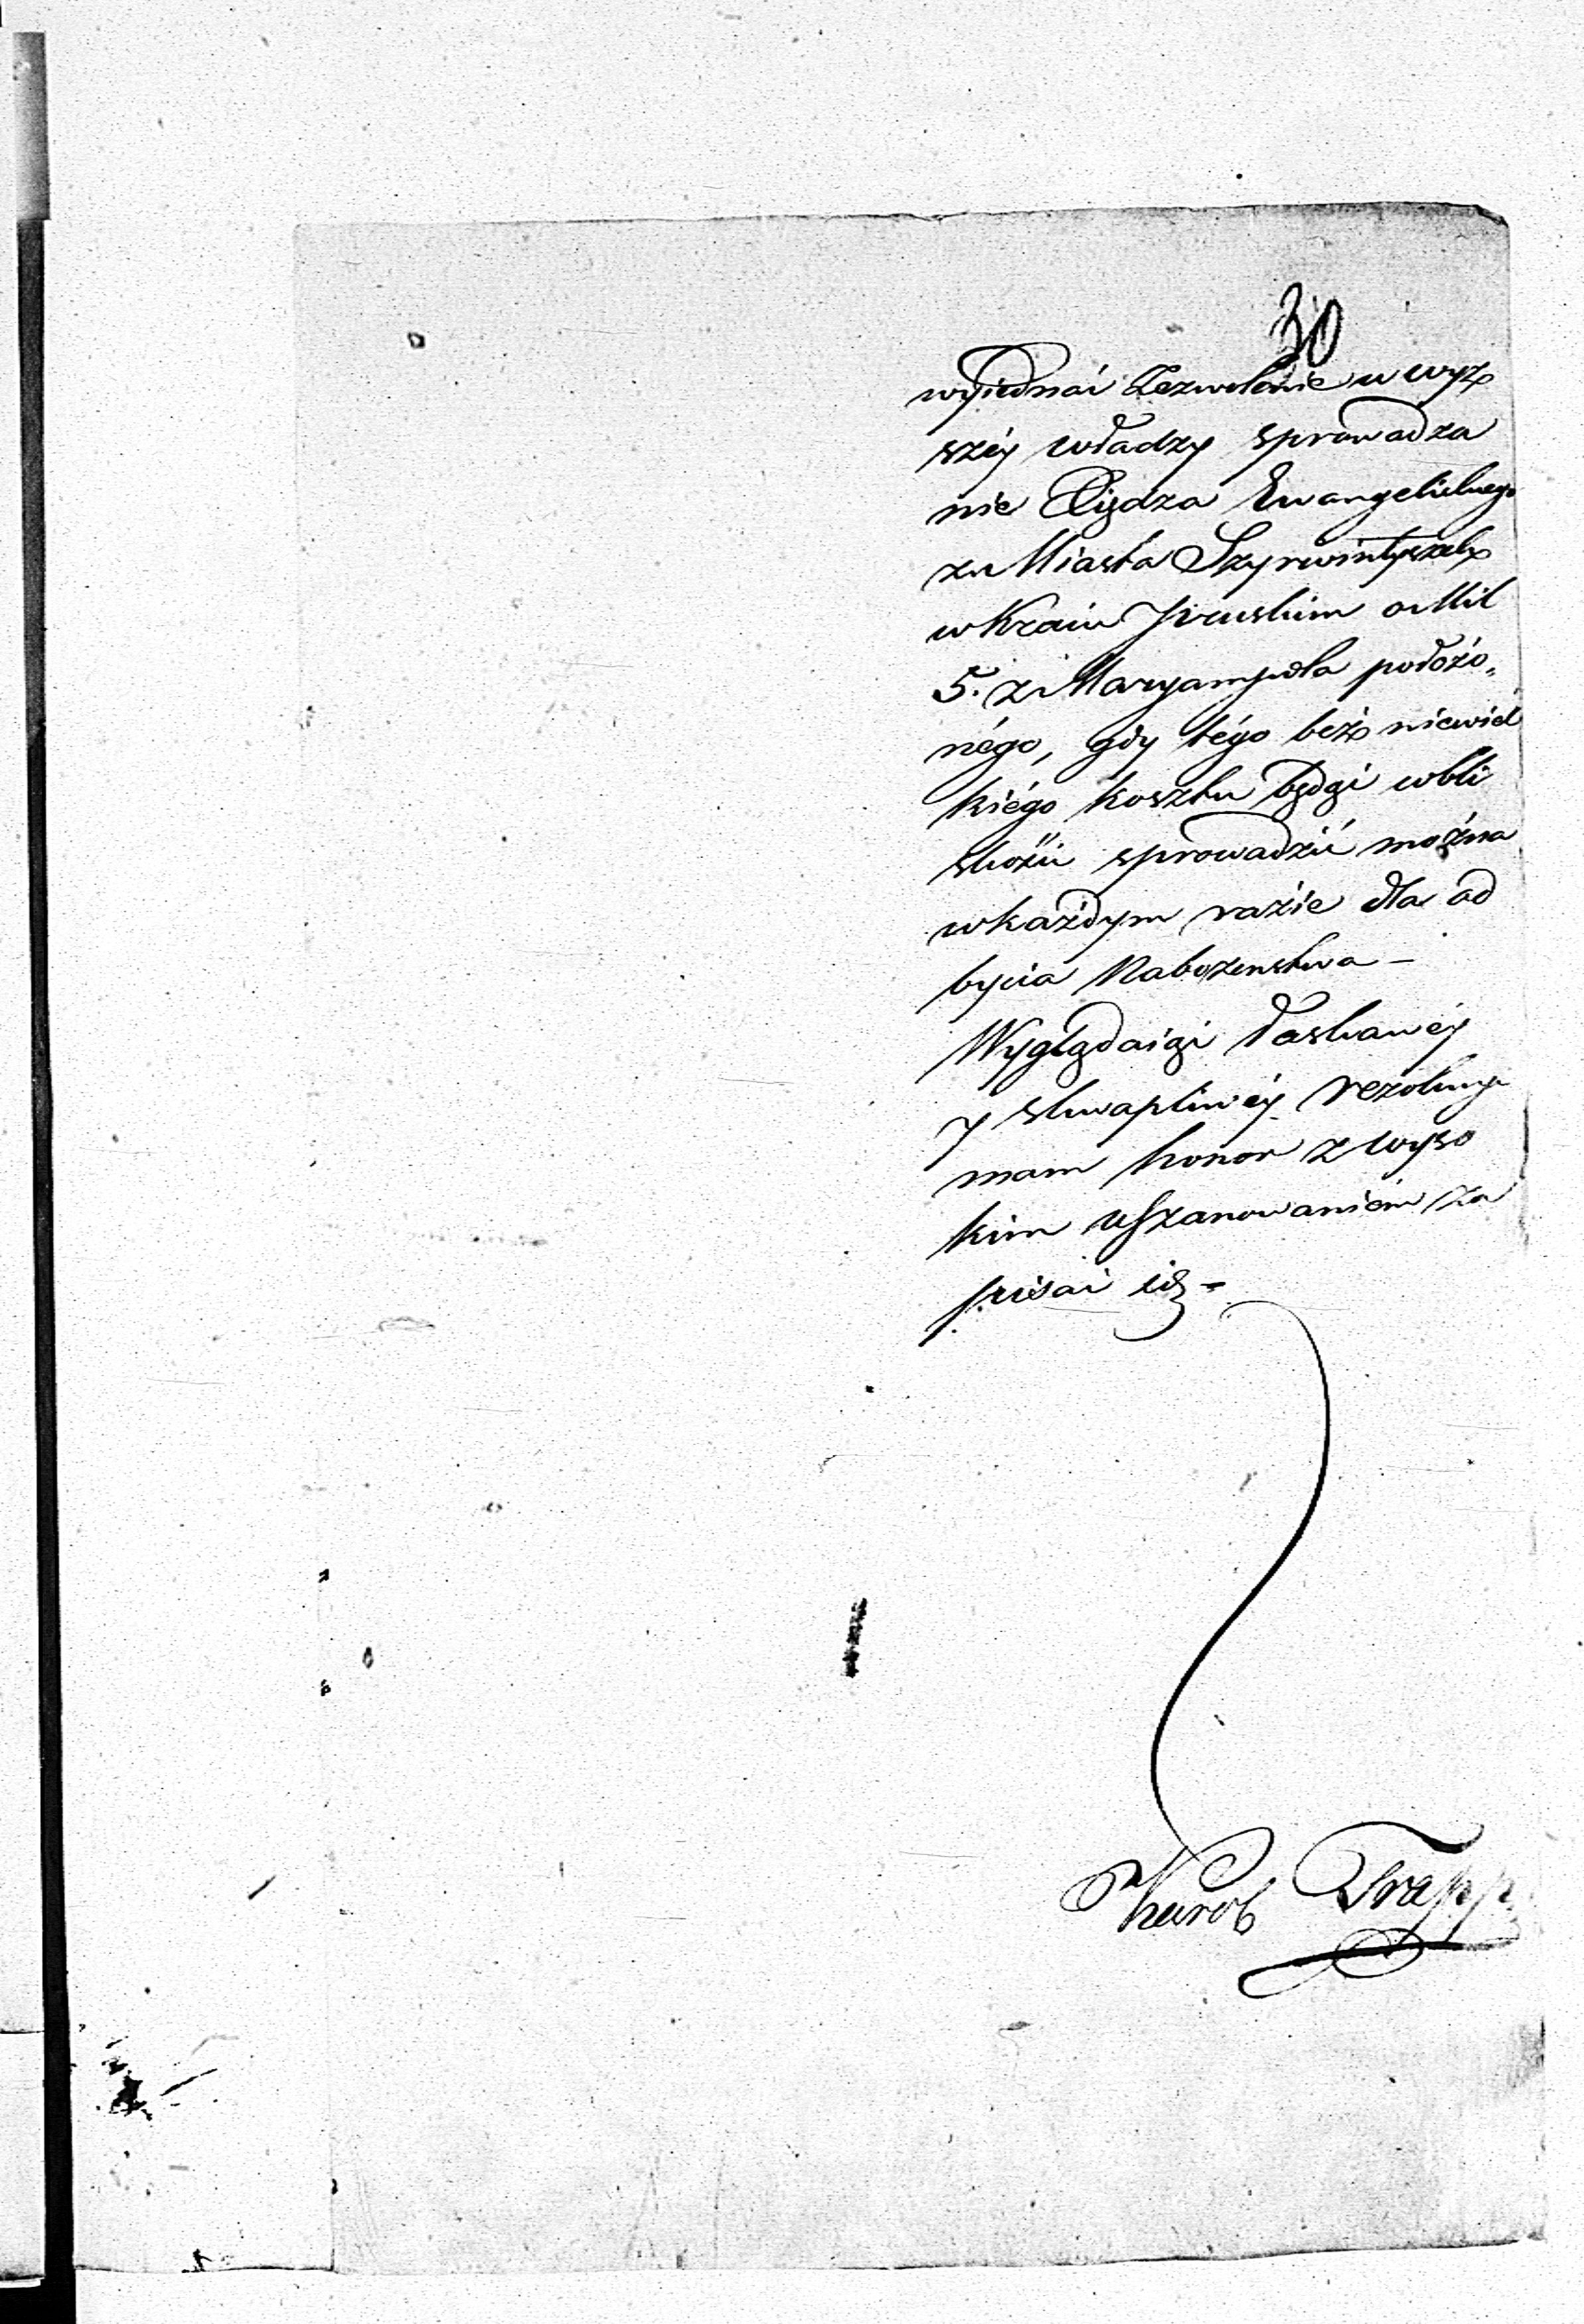 30
wyiednać Zezwolenie u wyż
széy władzy sprowadza
nie Xiędza Ewangielicznego
z Miasta Szyrwintyszek
w Kraiu Pruskim o Mil
5. z Maryampola położo„
négo, gdy tégo bez niewiel
kiégo kosztu będąc w bli
skości sprowadzić można
w każdym razie dla od
bycia Nabożenstwa –
Wyglądaiąc łaskawéy
y skwapliwéy rezolucyi
mam honor z wyso
kim uszanowaniem za
pisać się –
Karol Trapp